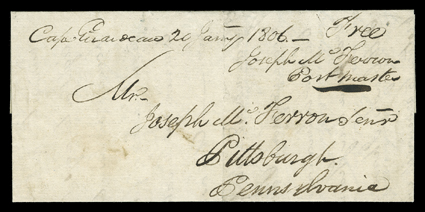 Cape Girardeau 20 Jany 1806. — Free
Joseph Mc Ferron
Postmaster
Mr.
Joseph Mc. Ferron Senr
Pittsburgh.
Pennsylvania